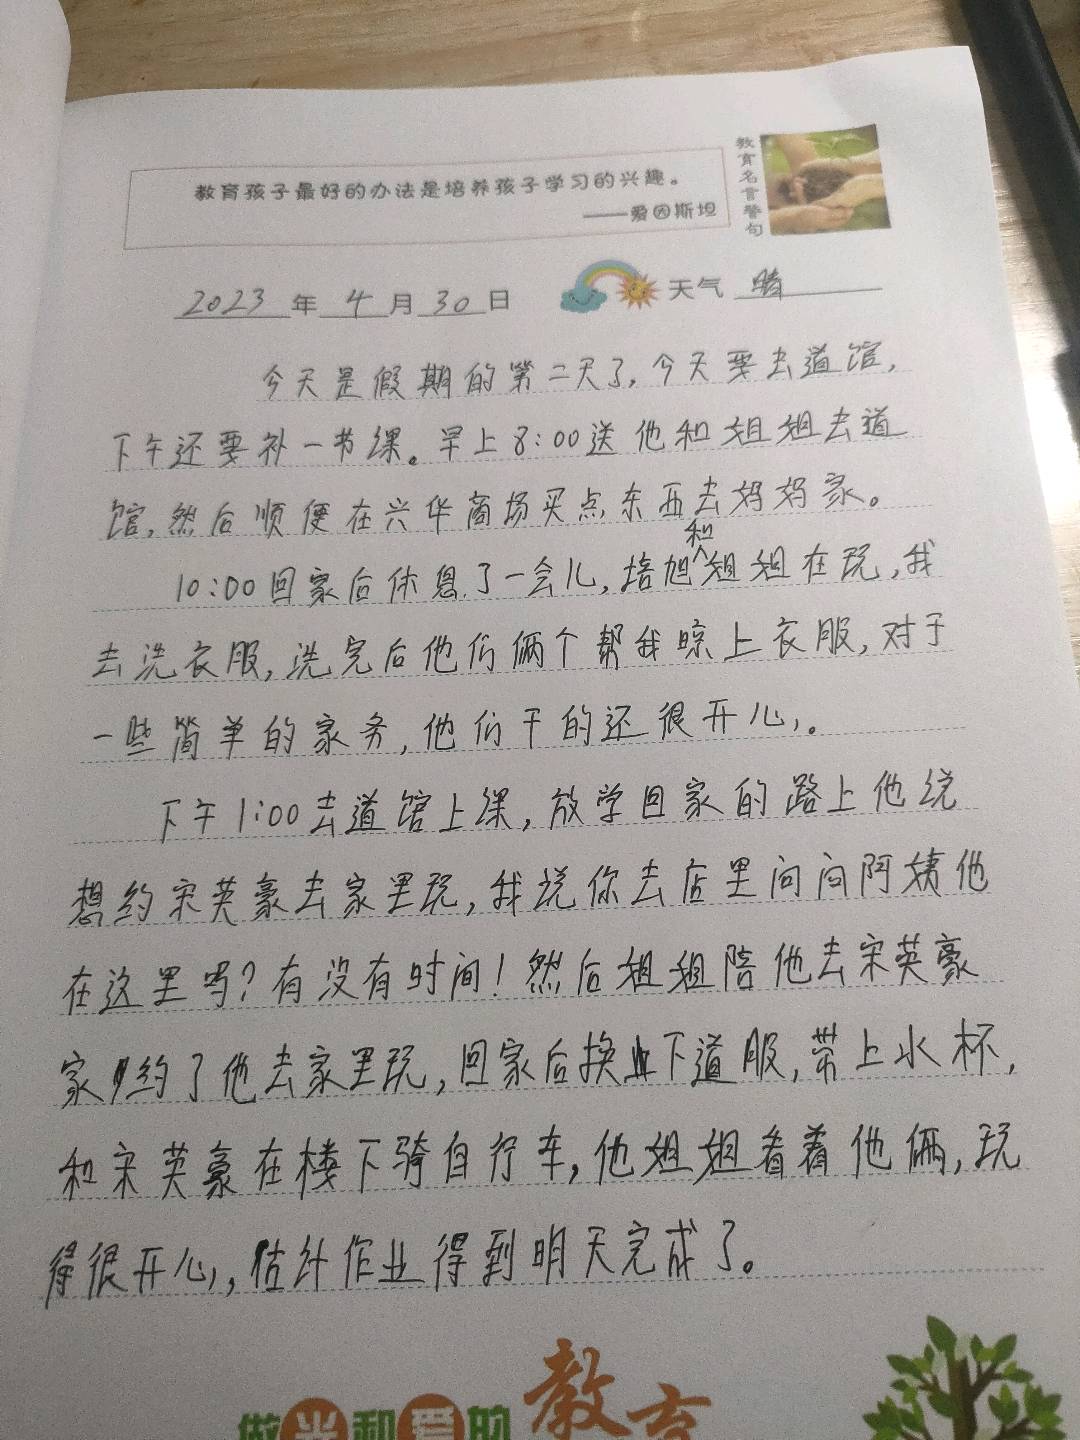 教育孩子最好的办法是培养孩子学习的兴趣。
——爱因斯坦
教育名言警句
2023年4月30日 天气 晴
今天是假期的第二天了,今天要去道馆,
下午还要补一节课。早上8:00送他和姐姐去道
馆,然后顺便在兴华商场买点东西去妈妈家。
10:00回家后休息了一会儿,培旭和姐姐在玩,我
去洗衣服,洗完后他们俩个帮我晾上衣服,对于
一些简单的家务,他们干的还很开心。
下午1:00去道馆上课,放学回家的路上他说
想约宋英豪去家里玩,我说你去店里问问阿姨他
在这里吗?有没有时间!然后姐姐陪他去宋英豪
家约了他去家里玩,回家后换下道服,带上水杯,
和宋英豪在楼下骑自行车,他姐姐看着他俩,玩
得很开心,估计作业得到明天完成了。
做光和爱的教育